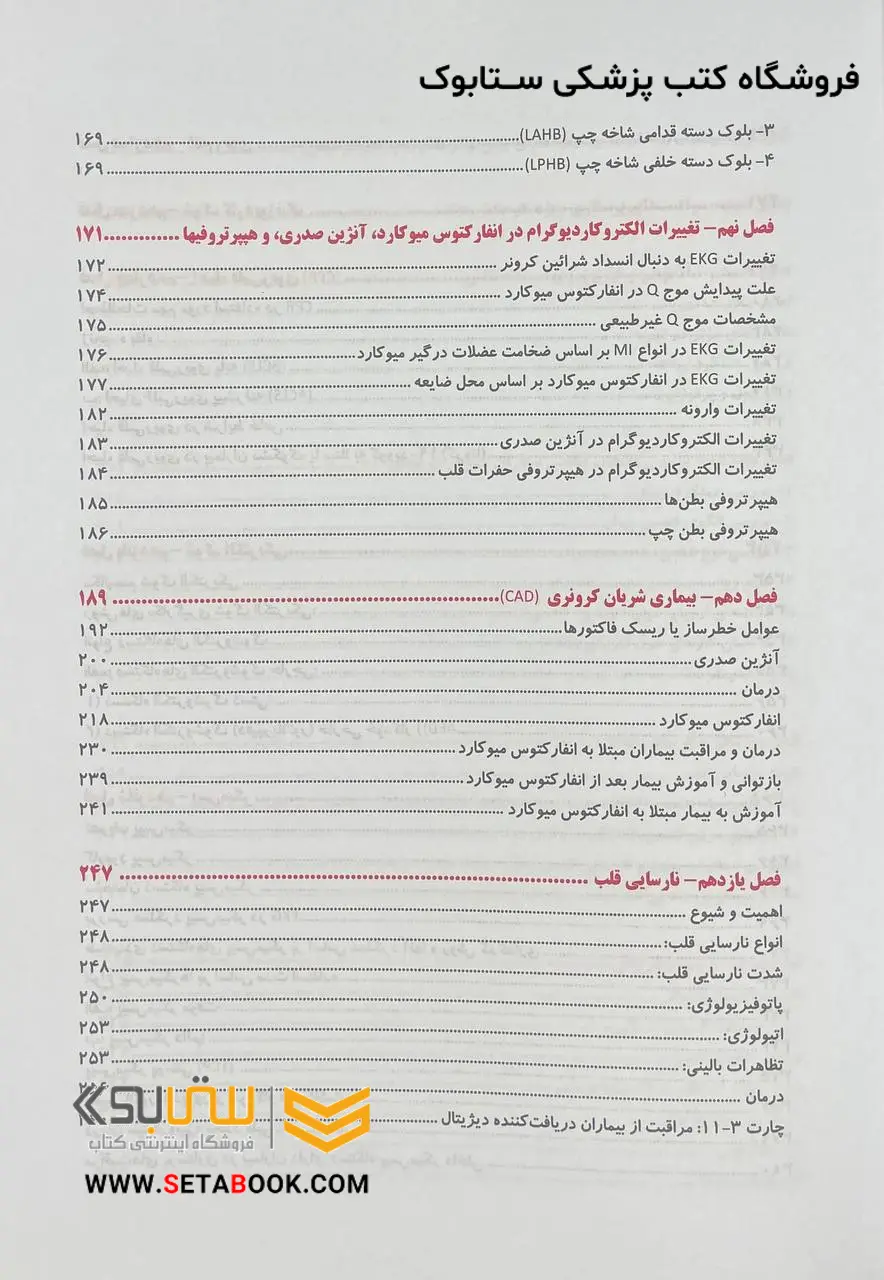 فروشگاه کتب پزشکی ستابوک
۳- بلوک دسته قدامی شاخه چپ (LAHB)..........۱۶۹
۴- بلوک دسته خلفی شاخه چپ (LPHB)..........۱۶۹
فصل نهم– تغییرات الکتروکاردیوگرام در انفارکتوس میوکارد، آنژین صدری، و هیپرتروفیها ..........۱۷۱
تغییرات EKG به دنبال انسداد شرائین کرونر ..........۱۷۲
علت پیدایش موج Q در انفارکتوس میوکارد ..........۱۷۴
مشخصات موج Q غیرطبیعی ..........۱۷۵
تغییرات EKG در انواع MI بر اساس ضخامت عضلات درگیر میوکارد..........۱۷۶
تغییرات EKG در انفارکتوس میوکارد بر اساس محل ضایعه ..........۱۷۷
تغییرات وارونه ..........۱۸۲
تغییرات الکتروکاردیوگرام در آنژین صدری..........۱۸۳
تغییرات الکتروکاردیوگرام در هیپرتروفی حفرات قلب ..........۱۸۴
هیپرتروفی بطن‌ها..........۱۸۵
هیپرتروفی بطن چپ ..........۱۸۶
فصل دهم– بیماری شریان کرونری (CAD)..........۱۸۹
عوامل خطرساز یا ریسک فاکتورها..........۱۹۲
آنژین صدری..........۲۰۰
درمان ..........۲۰۴
انفارکتوس میوکارد ..........۲۱۸
درمان و مراقبت بیماران مبتلا به انفارکتوس میوکارد..........۲۳۰
بازتوانی و آموزش بیمار بعد از انفارکتوس میوکارد ..........۲۳۹
آموزش به بیمار مبتلا به انفارکتوس میوکارد ..........۲۴۱
فصل یازدهم– نارسایی قلب ..........۲۴۷
اهمیت و شیوع ..........۲۴۷
انواع نارسایی قلب:..........۲۴۸
شدت نارسایی قلب: ..........۲۴۸
پاتوفیزیولوژی: ..........۲۵۰
اتیولوژی: ..........۲۵۳
تظاهرات بالینی: ..........۲۵۳
درمان ..........
چارت ۳-۱۱: مراقبت از بیماران دریافت‌کننده دیژیتال ..........
ستابوک
فروشگاه اینترنتی کتاب
WWW.SETABOOK.COM